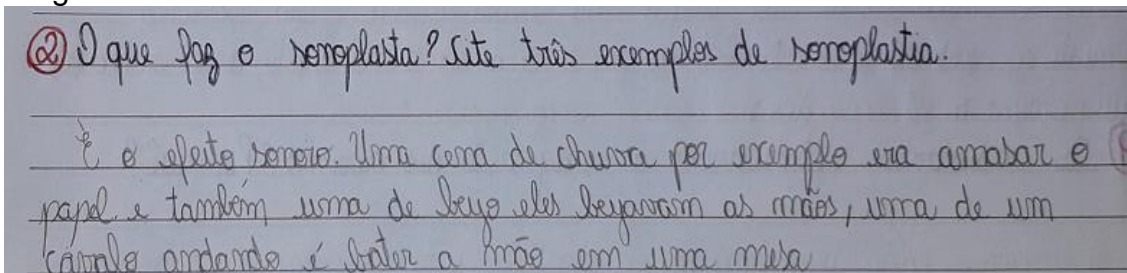 ② O que faz o sonoplasta? Cite três exemplos de sonoplastia.
É o efeito sonoro. Uma cena de chuva por exemplo era amasar o
papel e também uma de beijo eles beijavam as mãos, uma de um
cavalo andando é bater a mão em uma mesa